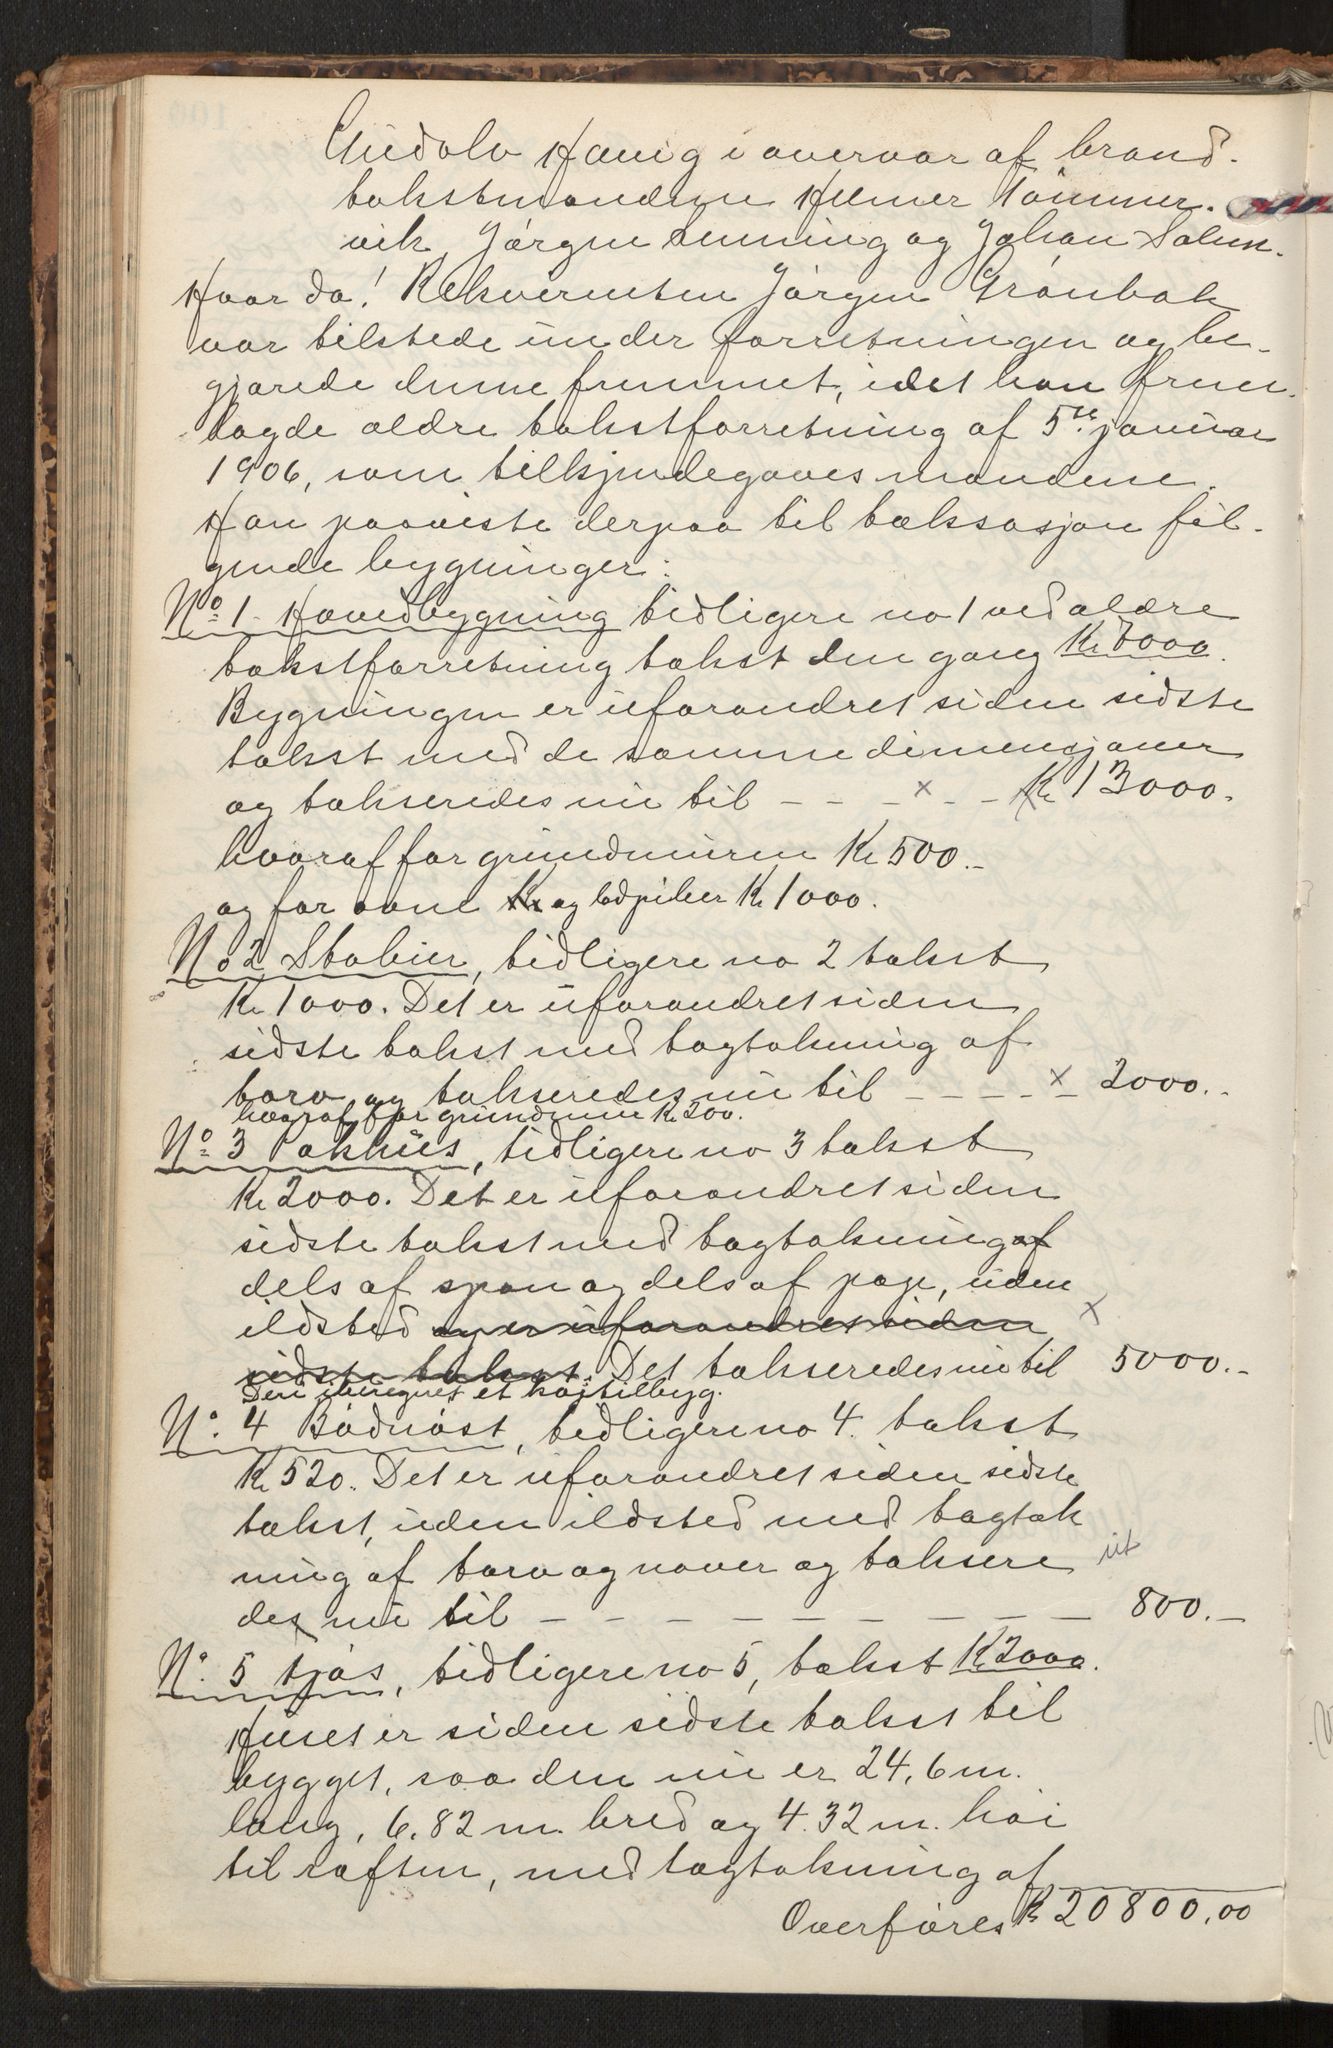 Gudolv Haug i overvær af brand-
takstmændene Hilmer Tømmer-
vik, Jørgen Henning og Johan Solem.
Hvor da! Rekvirenten Jørgen Grønbæk
var tilstede under forretningen og be-
gjærede denne fremmet, idet han frem-
lagde ældre takstforretning af 5te januar
1906, som tilkjendegaves mændene.
Han paaviste derpaa til taksasjon føl-
gende bygninger:
No 1. Hovedbygning tidligere no 1 ved ældre
takstforretning takst den gang Kr 7000.
Bygningen er uforandret siden sidste
takst med de samme dimensjoner
og takseredes nu til – – – x – – Kr 13000.
hvoraf for grundmuren Kr 500.–
og for ovne Kr og ledpiber Kr 1000.
No 2 Stabur, tidligere no 2 takst
Kr 1000. Det er uforandret siden
sidste takst med tagtækning af
torv og takseredes nu til – – – – x – 2000.–
hvoraf for grundmur Kr 200.
No 3 Pakhus, tidligere no 3 takst
Kr 2000. Det er uforandret siden
sidste takst med tagtækning af
dels af spon og dels af papp, uden
ildsted og er uforandret siden x
sidste takst. Det takseredes nu til 5000.–
Deri iberegnet et kaitilbyg.
No. 4 Bådnøst, tidligere no 4. takst
Kr 520. Det er uforandret siden sidste
takst, uden ildsted med tagtæk
ning af torv og næver og taksere ut
des nu til – – – – – – – – – 800.–
No. 5 Fjøs, tidligere no 5, takst Kr 2000.
Huset er siden sidste takst til
bygget, saa den nu er 24,6 m.
lang, 6.82 m. bred og 4.32 m. høi
til raften, med tagtækning af
Overføres Kr 20800,00